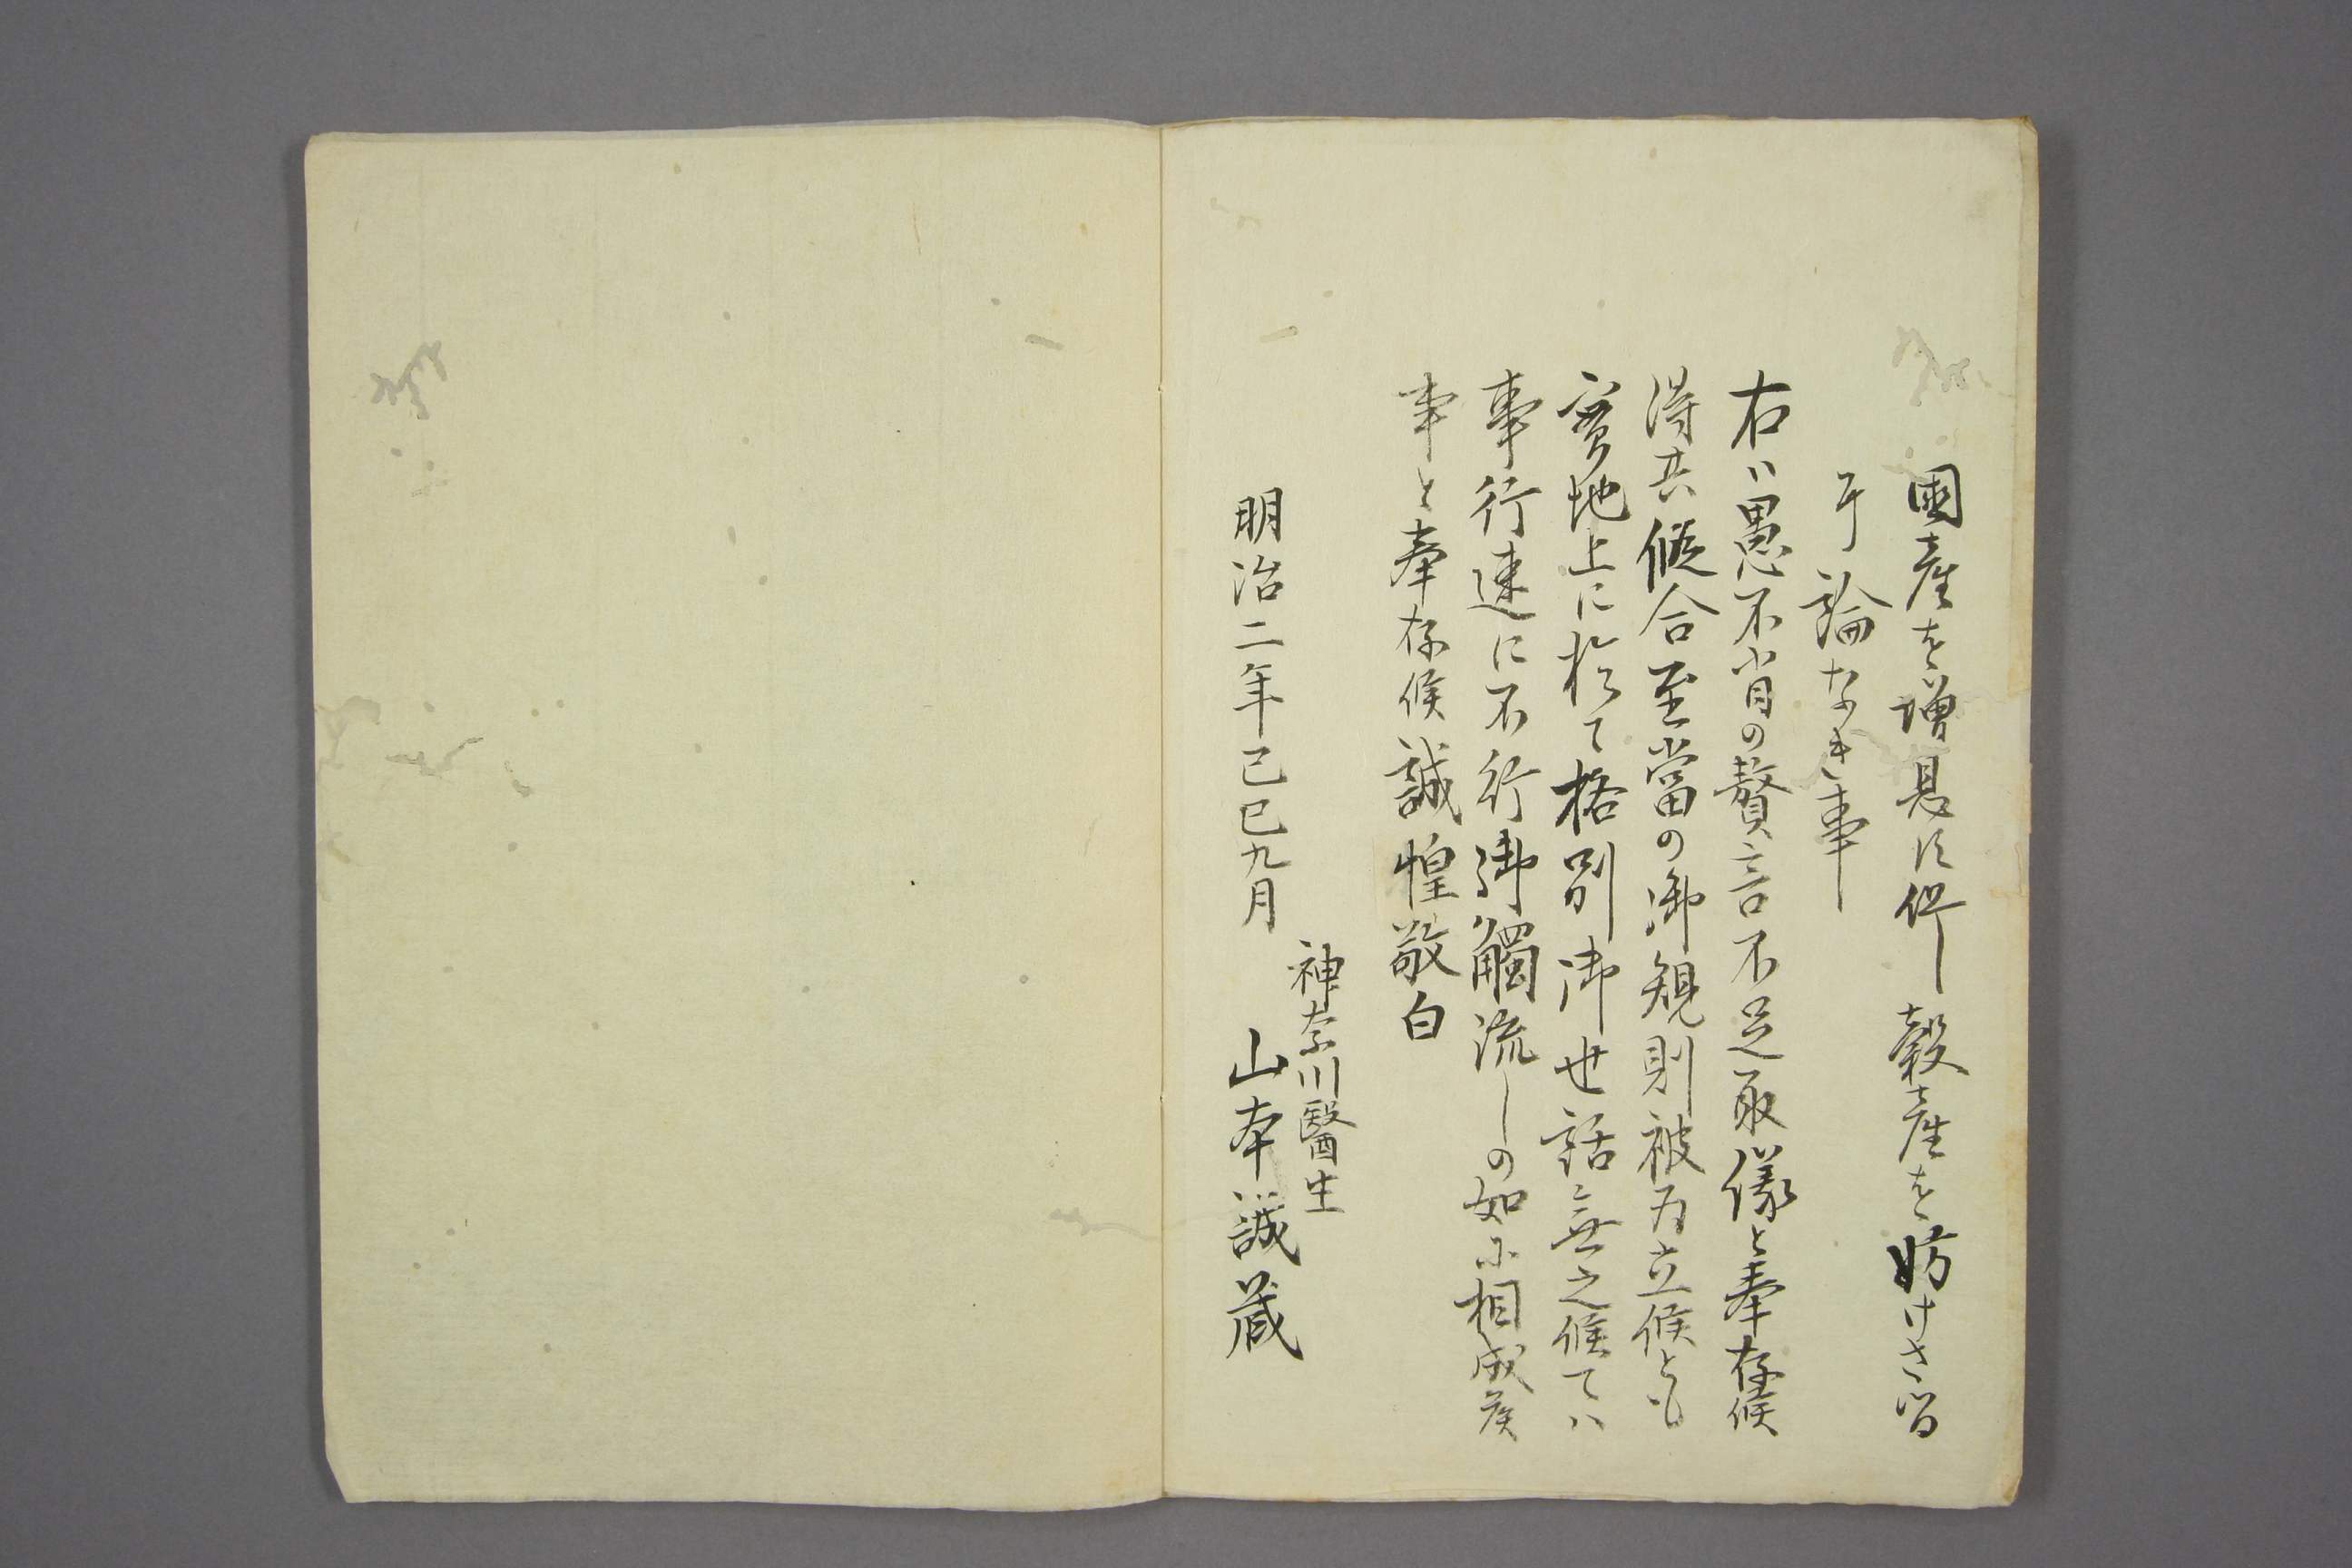 國産を増息に供し穀産を妨けさる
事論なき事
右ハ愚不肖の贅言不足取儀と奉存候
得共假合至當の御規則被為立候とも
實地上に於て格別御世話無之候てハ
事行速に不行御觸流しの如に相成候
事と奉存候誠惶敬白
明治二年己巳九月
神奈川醫生
山本誠蔵